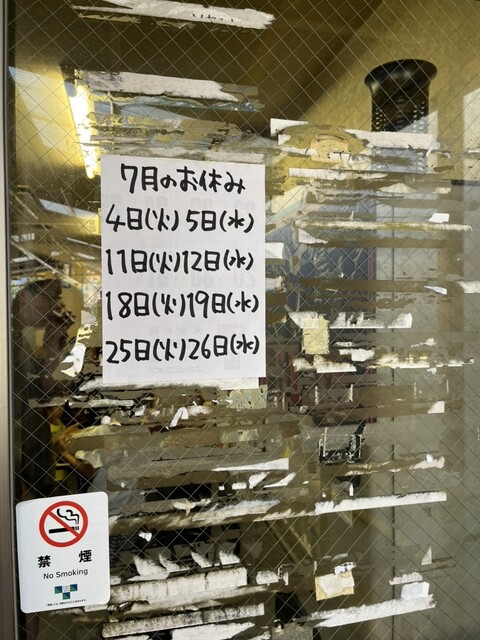 7月のお休み
4日(火)5日(水)
11日(火)12日(水)
18日(火)19日(水)
25日(火)26日(水)
禁煙
No Smoking